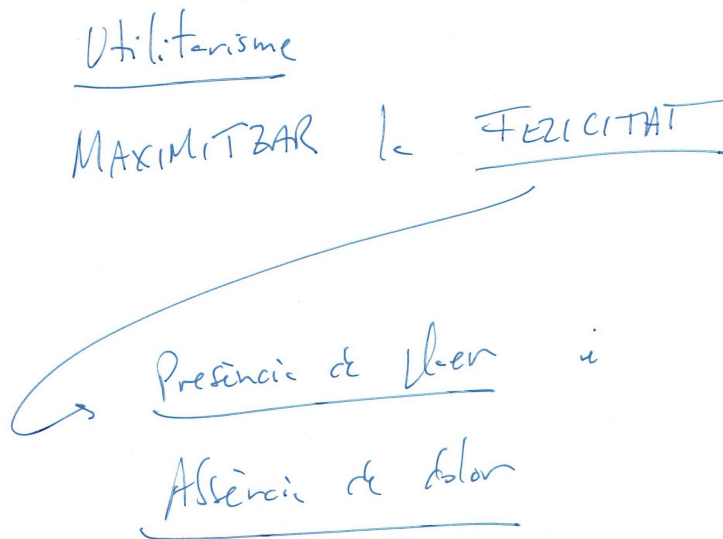 Utilitarisme
MAXIMITZAR la FELICITAT
Presència de plaer i
Absència de dolor